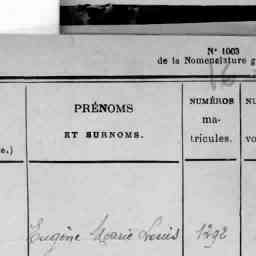 N° 1003
de la Nomenclature g
PRÉNOMS
ET SURNOMS.
NUMÉROS
ma-
tricules.
NU
vo
e.)
Eugène Marie Louis 1292